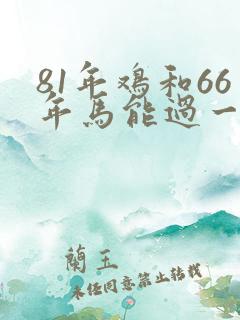 81年鸡和66
年馬能過一
蘭玉
未经同意禁止转载